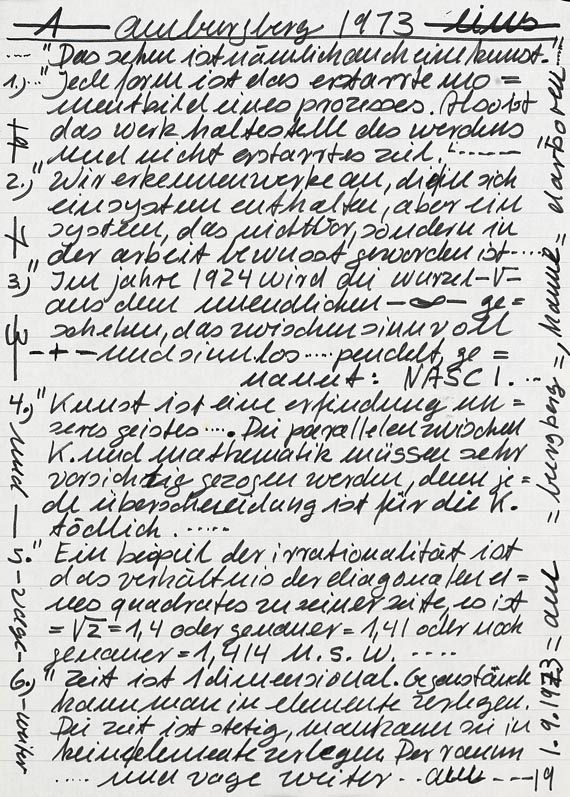 1 — amburgberg 1973 — eins
.... "Das sehen ist nämlich auch eine kunst." ....
1.) .. "Jede form ist das erstarrte mo =
mentbild eines prozesses. Also ist
das werk haltestelle des werdens
und nicht erstarrtes ziel." ......
2.) "Wir erkennen werke an, die in sich
ein system enthalten, aber ein
system, das nicht vor, sondern in
der arbeit bewusst geworden ist ....
3.) "Im jahre 1924 wird die wurzel -√-
aus dem unendlichen - ∞ - ge =
zehen, das zwischen sinnvoll
- + - und sinnlos .... pendelt, ge =
nannt: NASCI. ...
4.) "Kunst ist eine erfindung un =
seres geistes .... Die parallelen zwischen
K. und mathematik müssen sehr
vorsichtig gezogen werden, denn je =
de überschneidung ist für die K.
tödlich. ......
5. " Ein beispiel der irrationalität ist
das verhältnis der diagonalen ei =
nes quadrates zu seiner seite, es ist
= √2 = 1,4 oder genauer = 1,41 oder noch
genauer = 1,414 u. s. w. ....
6.) " Zeit ist 1 dimensional. Gegenstände
kann man in elemente zerlegen.
Die zeit ist stetig, man kann sie in
keine elemente zerlegen. Der raum
..... und vage weiter .. am - - - 19
und — 5 - vage - 6.) - weiter
1.9.1973 = am = burgberg =, hanne = darboven ....